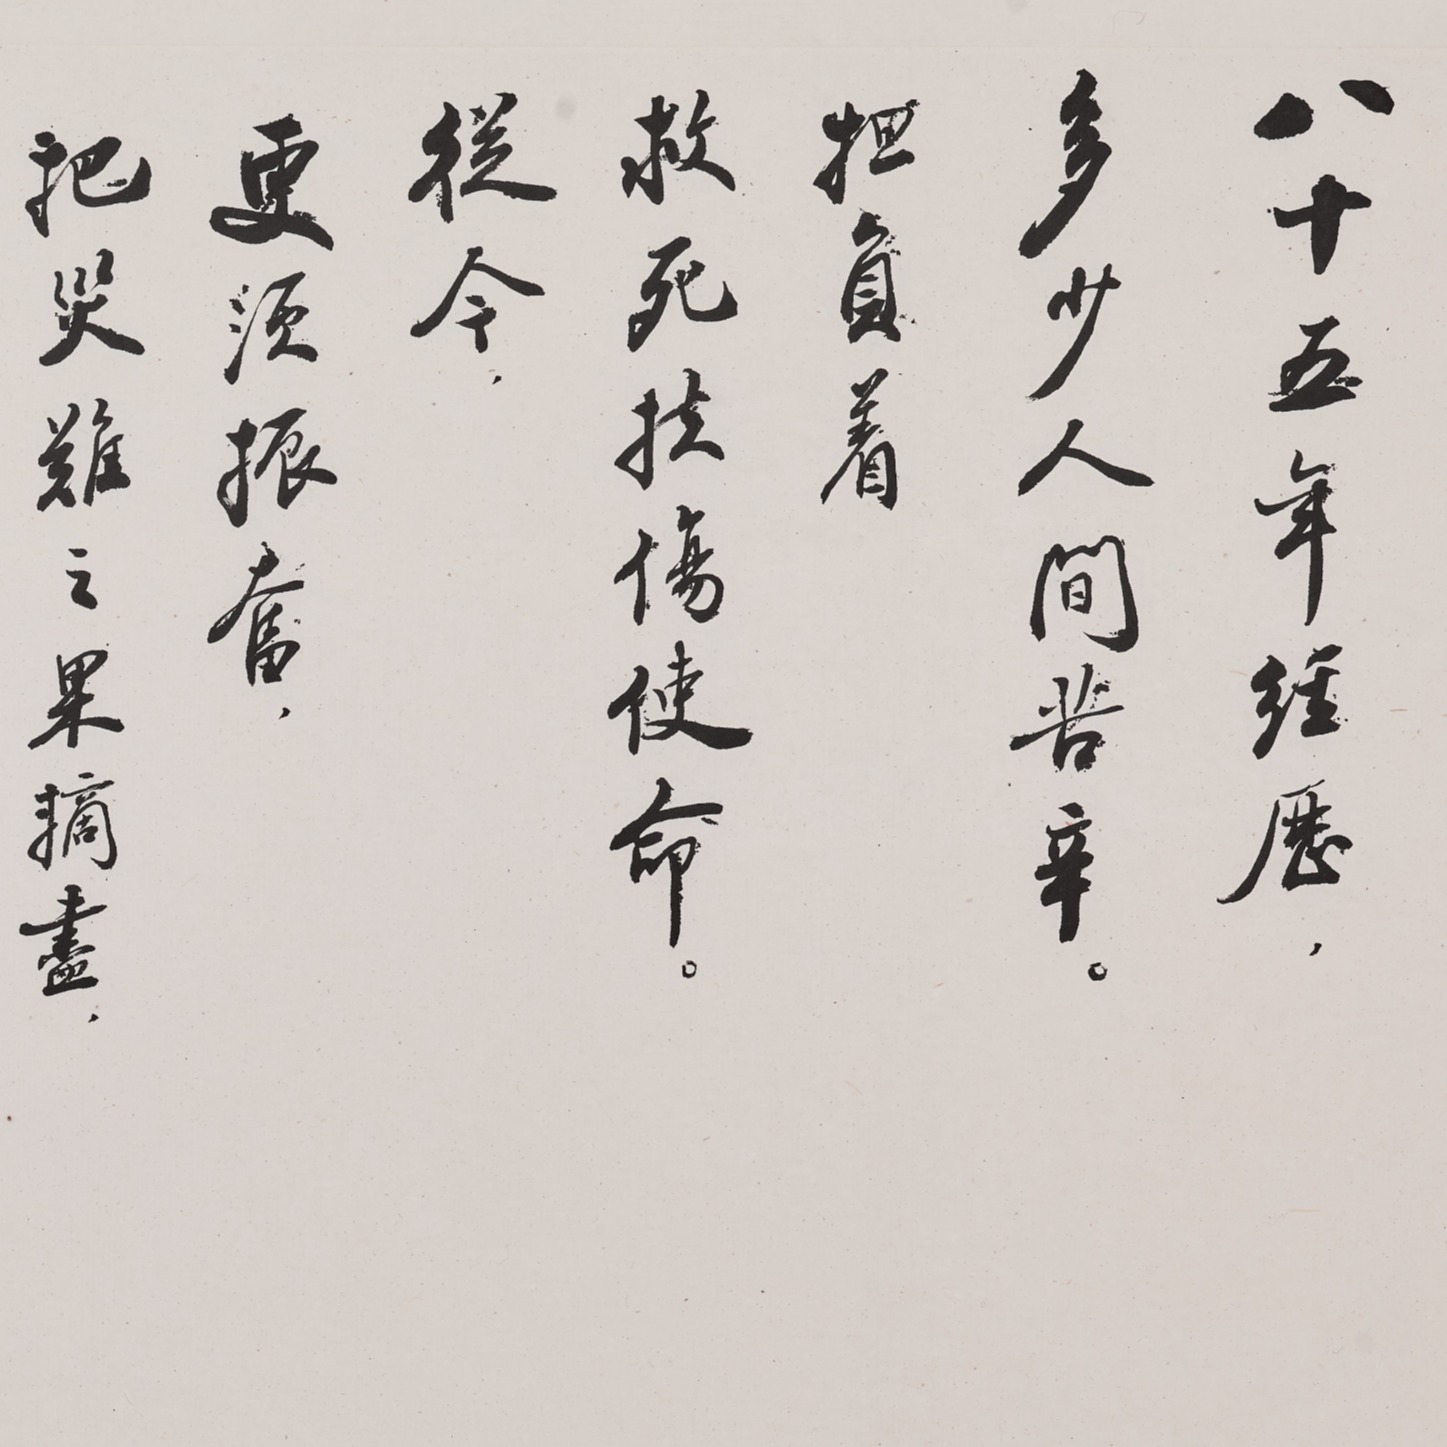 八十五年經歷，
多少人間苦辛。
担負着
救死扶傷使命。
從今，
更須振奮，
把災難之果摘盡，